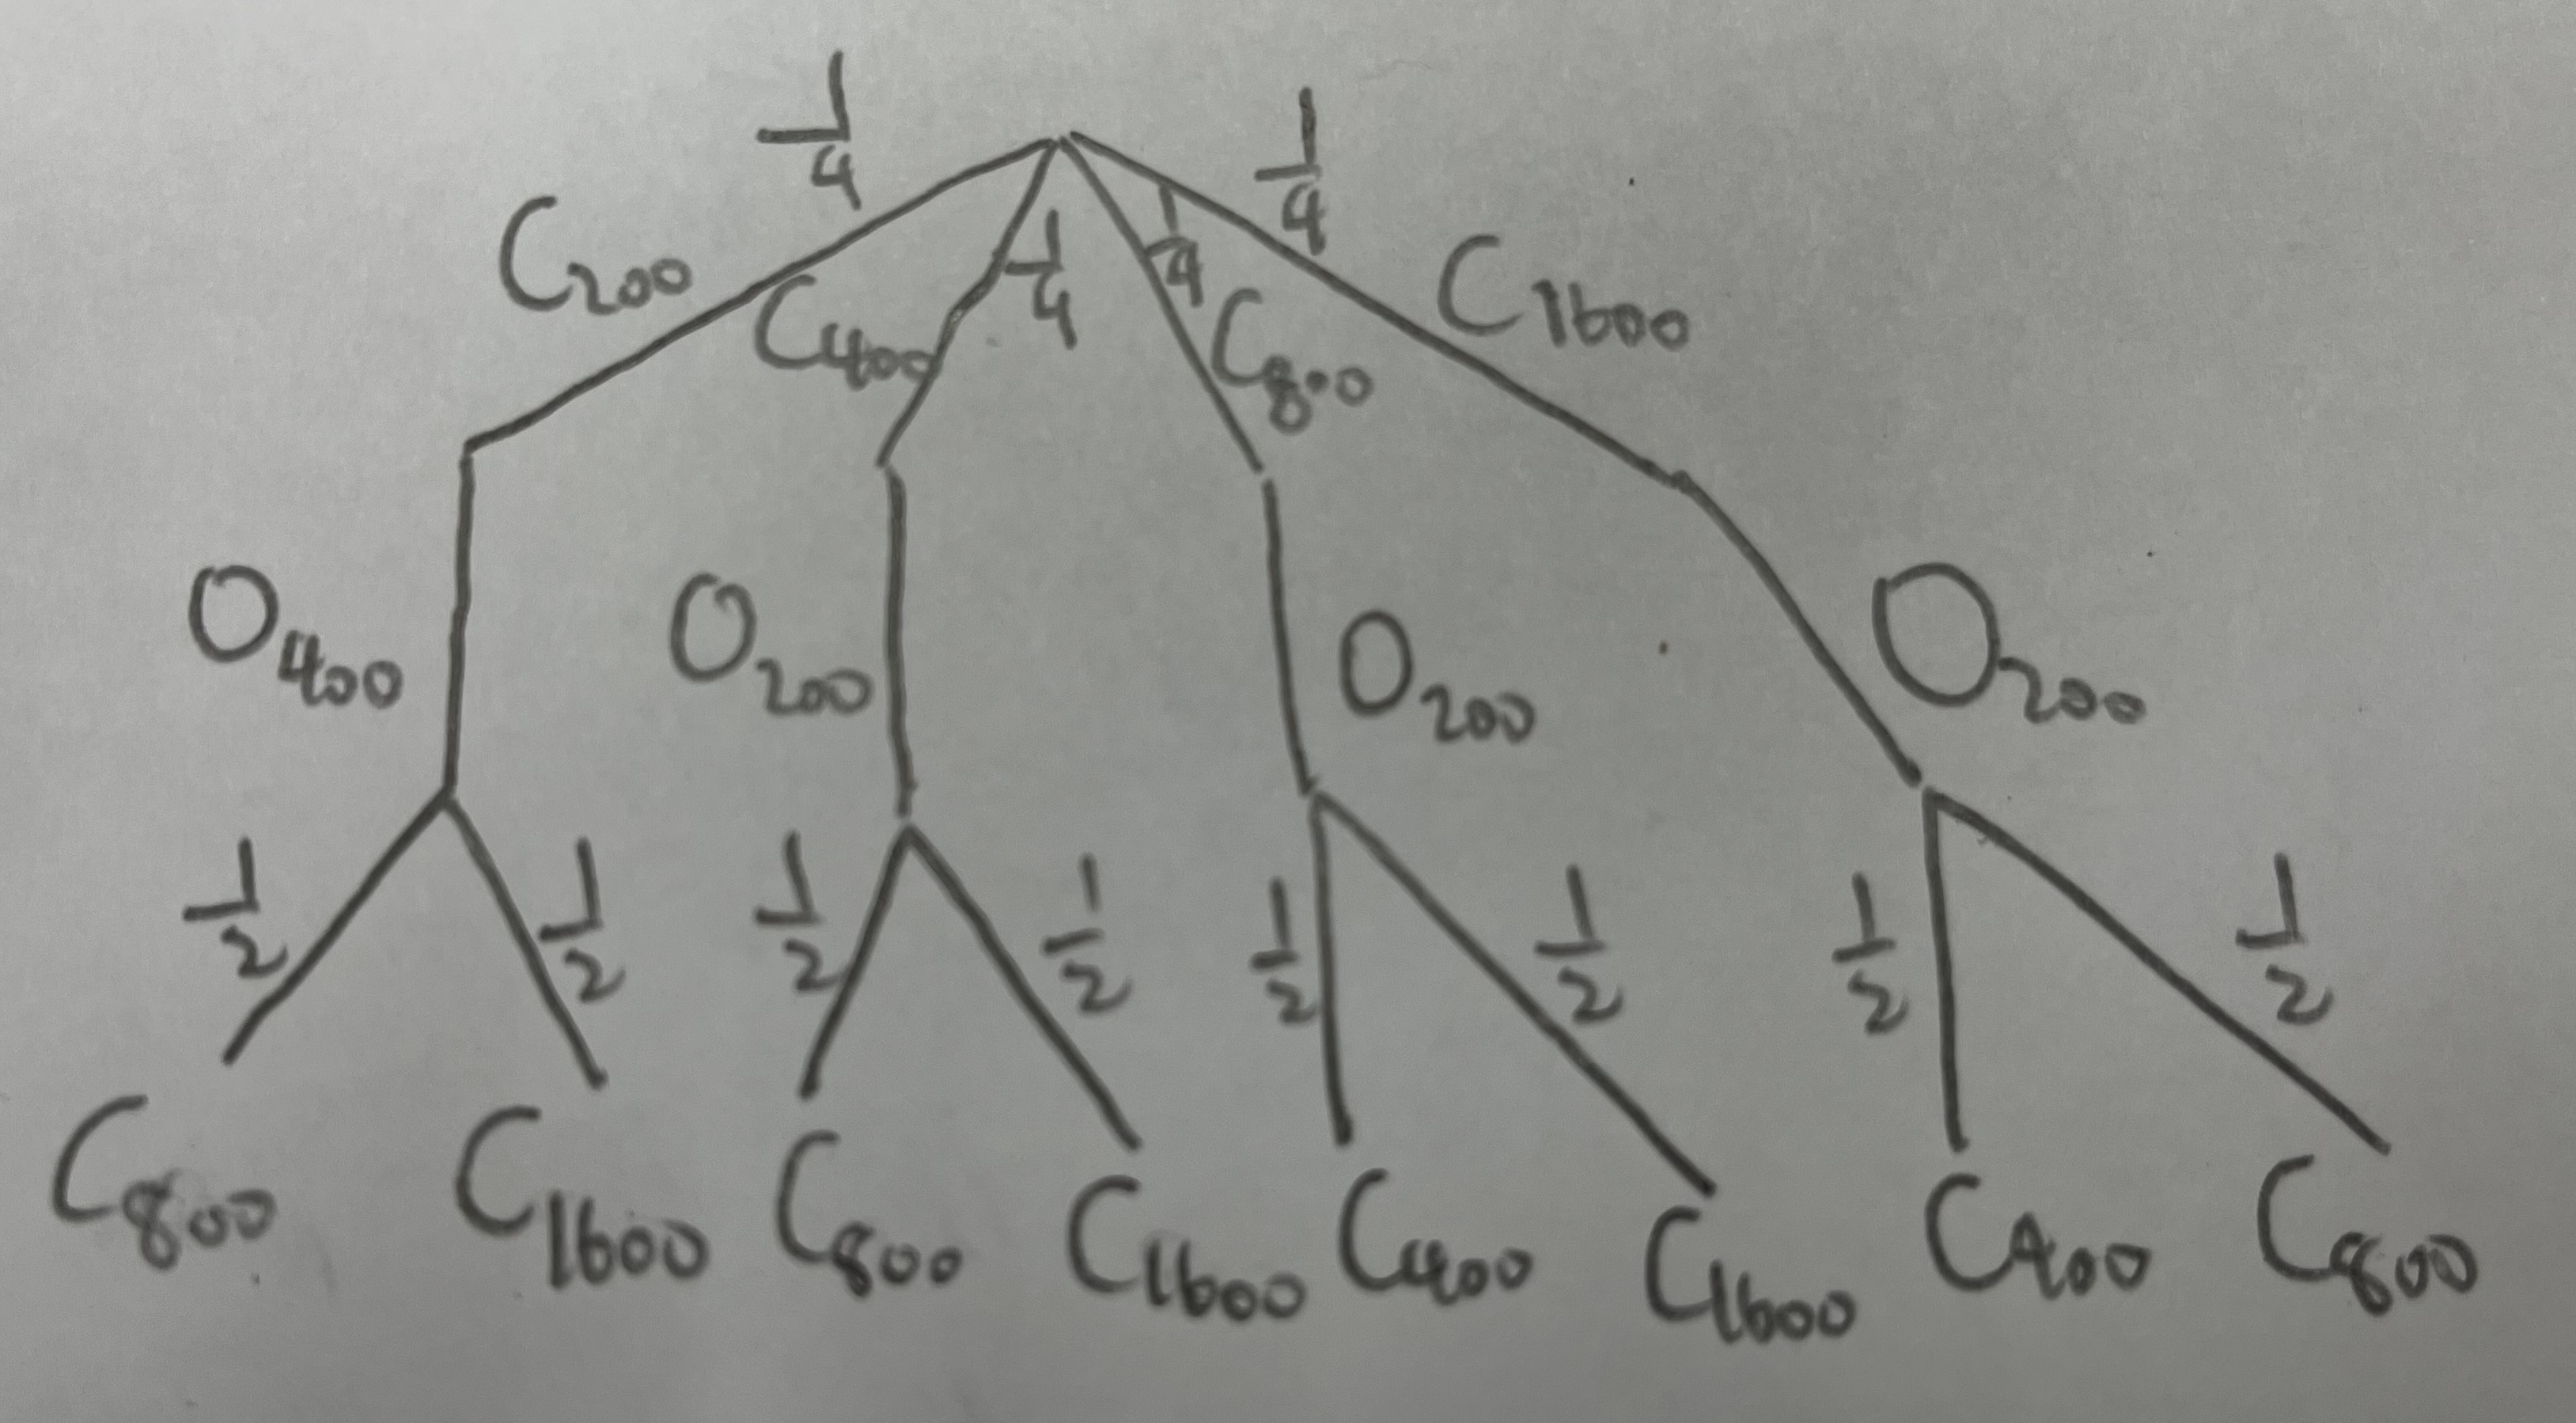 1/4 1/4
C200 C400 1/4 1/4 C800 C1600
O400 O200 O200 O200
1/2 1/2 1/2 1/2 1/2 1/2 1/2 1/2
C800 C1600 C800 C1600 C400 C1600 C400 C800